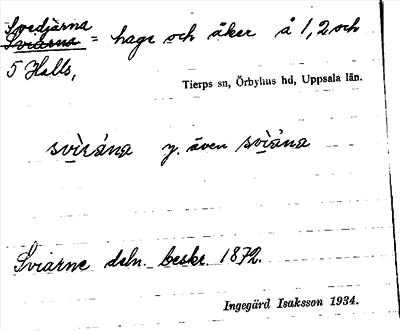 Svedjärna
Sviarna = hage och åker å 1, 2 och
5 Halls,
Tierps sn, Örbyhus hd, Uppsala län.
svìrána y. även svìána
Sviarne deln. beskr. 1872.
Ingegärd Isaksson 1934.